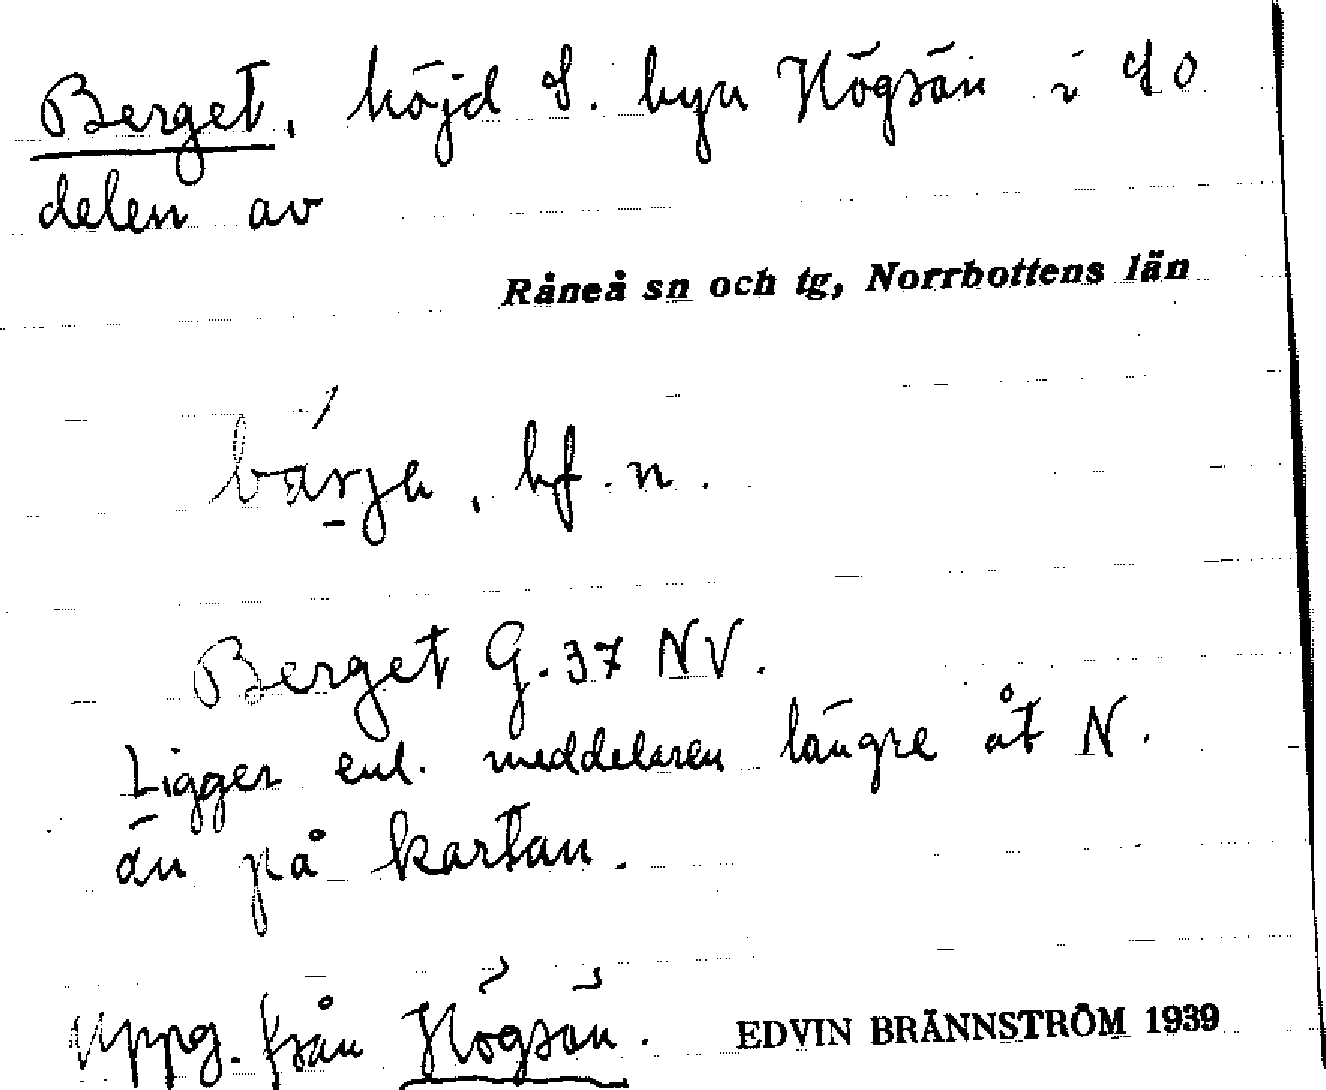 Berget, höjd S. byn Högsön i SO
delen av
Råneå sn och tg, Norrbottens län
bf. n.
Berget G. 37 NV.
Ligger enl. meddelaren längre åt N.
än på kartan.
Uppg. från Högsön. EDVIN BRÄNNSTRÖM 1939